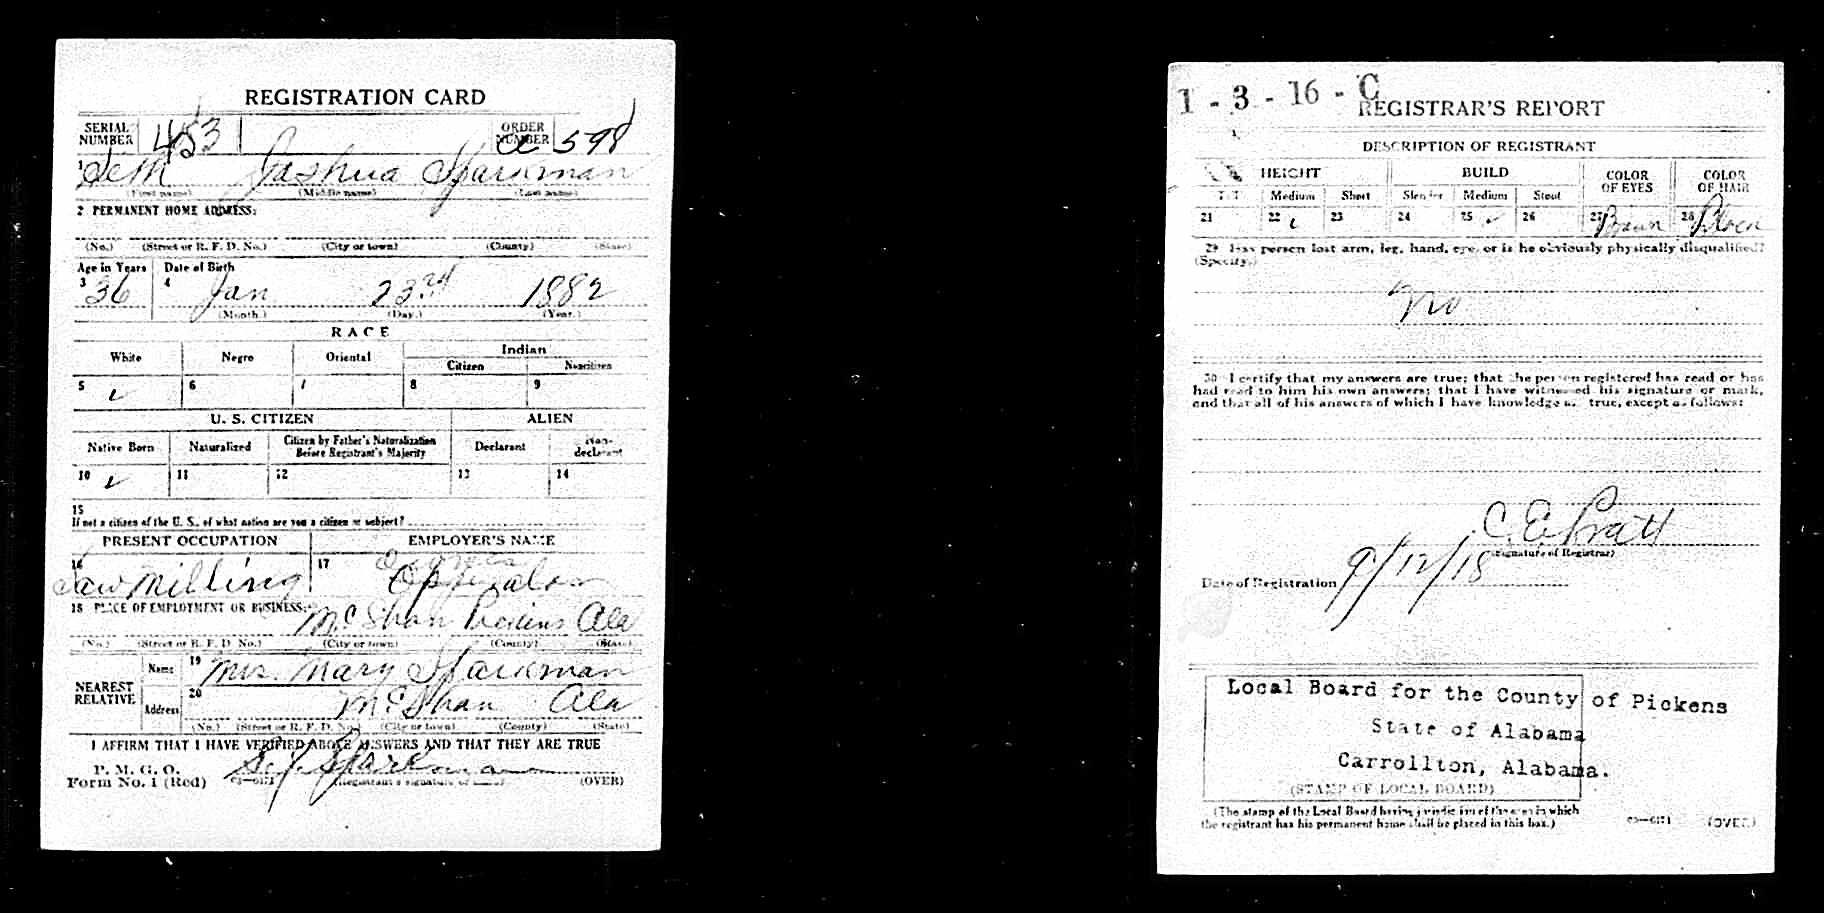 REGISTRATION CARD
SERIAL NUMBER 453 ORDER NUMBER a 598
1 Seth Joshua Sparkman
(First name) (Middle name) (Last name)
2 PERMANENT HOME ADDRESS:
(No.) (Street or R. F. D. No.) (City or town) (County) (State)
Age in Years Date of Birth
3 36 4 Jan 23rd 1882
(Month.) (Day.) (Year.)
RACE
White Negro Oriental Indian
Citizen Noncitizen
5 ✓ 6 7 8 9
U. S. CITIZEN ALIEN
Native Born Naturalized Citizen by Father's Naturalization Before Registrant's Majority Declarant Non-declarant
10 ✓ 11 12 13 14
15
If not a citizen of the U. S., of what nation are you a citizen or subject?
PRESENT OCCUPATION EMPLOYER'S NAME
16 Saw Milling 17
18 PLACE OF EMPLOYMENT OR BUSINESS:
McShan Pickens Ala
(No.) (Street or R. F. D. No.) (City or town) (County) (State)
NEAREST RELATIVE Name 19 Mrs. Mary Sparkman
Address 20 McShan Ala
(No.) (Street or R. F. D. No.) (City or town) (County) (State)
I AFFIRM THAT I HAVE VERIFIED ABOVE ANSWERS AND THAT THEY ARE TRUE
P. M. G. O.
Form No. 1 (Red) 03-6171 S. J. Sparkman (Registrant's signature or mark) (OVER)
1 - 3 - 16 - C
REGISTRAR'S REPORT
DESCRIPTION OF REGISTRANT
HEIGHT BUILD COLOR OF EYES COLOR OF HAIR
Medium Short Slender Medium Stout
21 22 ✓ 23 24 25 ✓ 26 27 Brown 28
29 Has person lost arm, leg, hand, eye, or is he obviously physically disqualified?
(Specify.)
No
30 I certify that my answers are true; that the person registered has read or has
had read to him his own answers; that I have witnessed his signature or mark,
and that all of his answers of which I have knowledge are true, except as follows:
C. E. Pratt
(Signature of Registrar)
Date of Registration 9/12/18
Local Board for the County of Pickens
State of Alabama
Carrollton, Alabama.
(STAMP OF LOCAL BOARD)
(The stamp of the Local Board having jurisdiction of the area in which
the registrant has his permanent home shall be placed in this box.)
03-6171 (OVER)